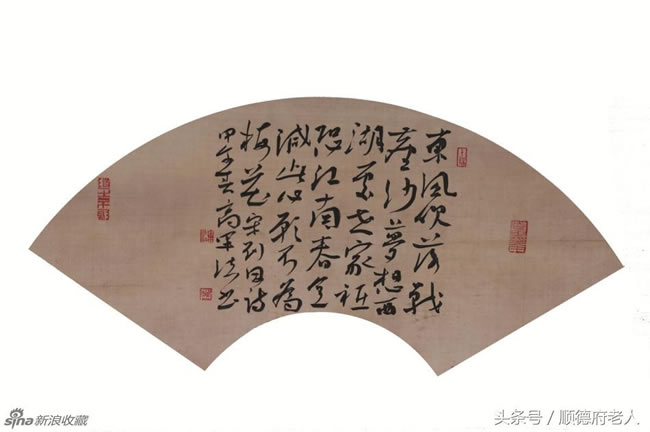 東風吹落戰
塵沙夢想西
湖處士家祗
恐江南春意
減此心不為
梅花 宋刘因诗
甲午 高軍书
sina新浪收藏
头条号 / 顺德府老人